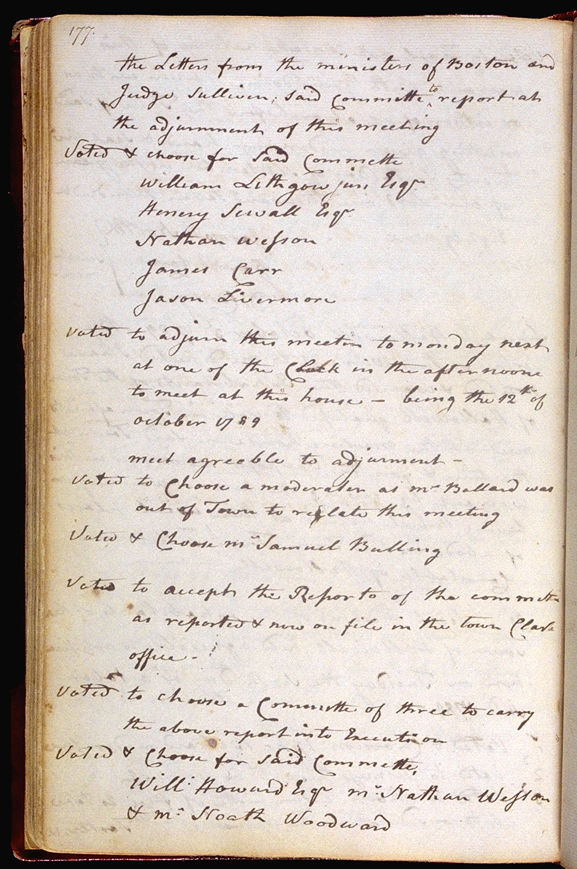 177.
the Letters from the ministers of Boston and
Judge Sulliven, said Committe to report at
the adjurnment of this meeting
Voted & choose for Said Committe
William Lithgow jun Esqr
Henery Sewall Esqr
Nathan Wesson
James Carr
Jason Livermore
Voted to adjurn this meetin to monday next
at one of the Clock in the afternoone
to meet at this house – being the 12th of
october 1789
meet agreable to adjurment –
Voted to Choose a moderater as mr Ballard was
out of Town to reglate this meeting
Voted & Choose mr Samuel Bulling
Voted to accept the Reporto of the committe
as reported & now on file in the town Clark
office –
Voted to choose a Committe of three to carry
the above report into Execution
Voted & Choose for Said Committe,
Willm Howard Esqr mr Nathan Wesson
& mr Noath Woodward